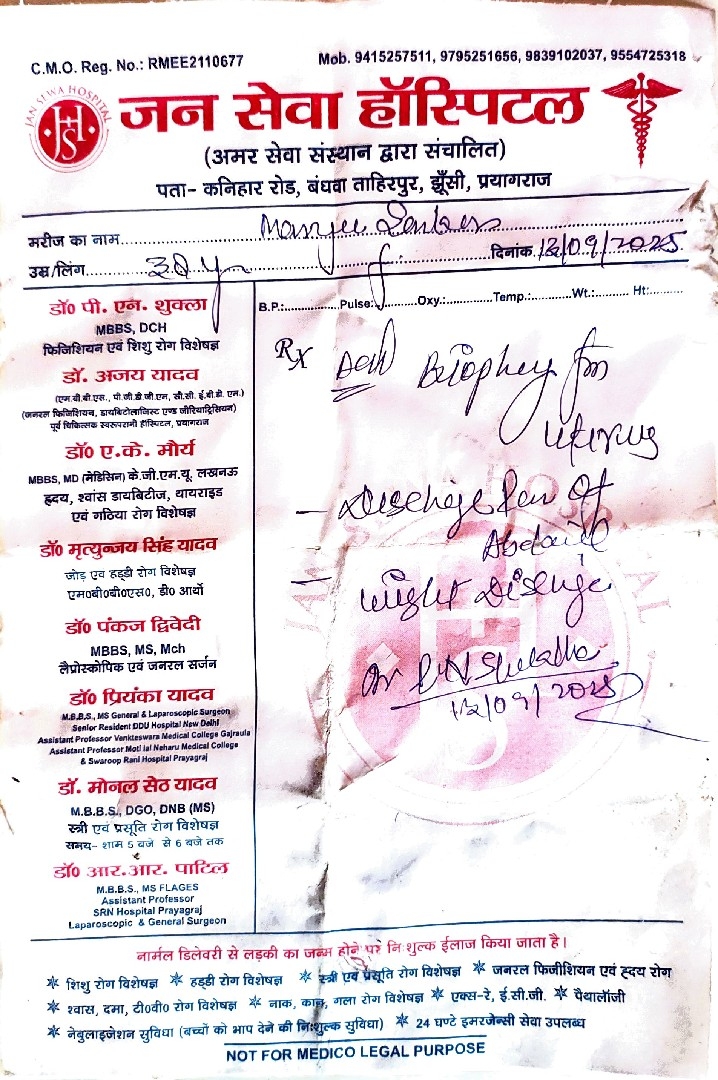 C.M.O. Reg. No.: RMEE2110677
Mob. 9415257511, 9795251656, 9839102037, 9554725318
JAN SEWA HOSPITAL
JHS
जन सेवा हॉस्पिटल
(अमर सेवा संस्थान द्वारा संचालित)
पता- कनिहार रोड, बंधवा ताहिरपुर, झूँसी, प्रयागराज
मरीज का नाम
उम्र/लिंग
दिनांक 12/09/2025
B.P.: Pulse: Oxy.: Temp.: Wt.: Ht:
डॉ0 पी. एन. शुक्ला
MBBS, DCH
फिजिशियन एवं शिशु रोग विशेषज्ञ
डॉ. अजय यादव
(एम.बी.बी.एस., पी.जी.डी.जी.एन, सी.सी. ई.बी.डी. एन.)
(जनरल फिजिशियन, डायबिटोलाजिस्ट एण्ड जीरियाट्रिसियन)
पूर्व चिकित्सक स्वरूपरानी हॉस्पिटल, प्रयागराज
डॉ0 ए.के. मौर्य
MBBS, MD (मेडिसिन) के.जी.एम.यू. लखनऊ
हृदय, श्वांस डायबिटीज, थायराइड
एवं गठिया रोग विशेषज्ञ
डॉ0 मृत्युन्जय सिंह यादव
जोड़ एवं हड्डी रोग विशेषज्ञ
एम0बी0बी0एस0, डी0 आर्थो
डॉ0 पंकज द्विवेदी
MBBS, MS, Mch
लैप्रोस्कोपिक एवं जनरल सर्जन
डॉ0 प्रियंका यादव
M.B.B.S., MS General & Laparoscopic Surgeon
Senior Resident DDU Hospital New Delhi
Assistant Professor Venkteswara Medical College Gajraula
Assistant Professor Moti lal Neharu Medical College
& Swaroop Rani Hospital Prayagraj
डॉ. मोनल सेठ यादव
M.B.B.S., DGO, DNB (MS)
स्त्री एवं प्रसूति रोग विशेषज्ञ
समय- शाम 5 बजे से 6 बजे तक
डॉ0 आर.आर. पाटिल
M.B.B.S., MS FLAGES
Assistant Professor
SRN Hospital Prayagraj
Laparoscopic & General Surgeon
Rx
for
uterus
Of
12/09/2025
नार्मल डिलेवरी से लड़की का जन्म होने पर निःशुल्क ईलाज किया जाता है।
* शिशु रोग विशेषज्ञ * हड्डी रोग विशेषज्ञ * स्त्री एवं प्रसूति रोग विशेषज्ञ * जनरल फिजीशियन एवं हृदय रोग
* श्वास, दमा, टी0बी0 रोग विशेषज्ञ * नाक, कान, गला रोग विशेषज्ञ * एक्स-रे, ई.सी.जी. * पैथालॉजी
* नेबुलाइजेशन सुविधा (बच्चों को भाप देने की निःशुल्क सुविधा) * 24 घण्टे इमरजेन्सी सेवा उपलब्ध
NOT FOR MEDICO LEGAL PURPOSE